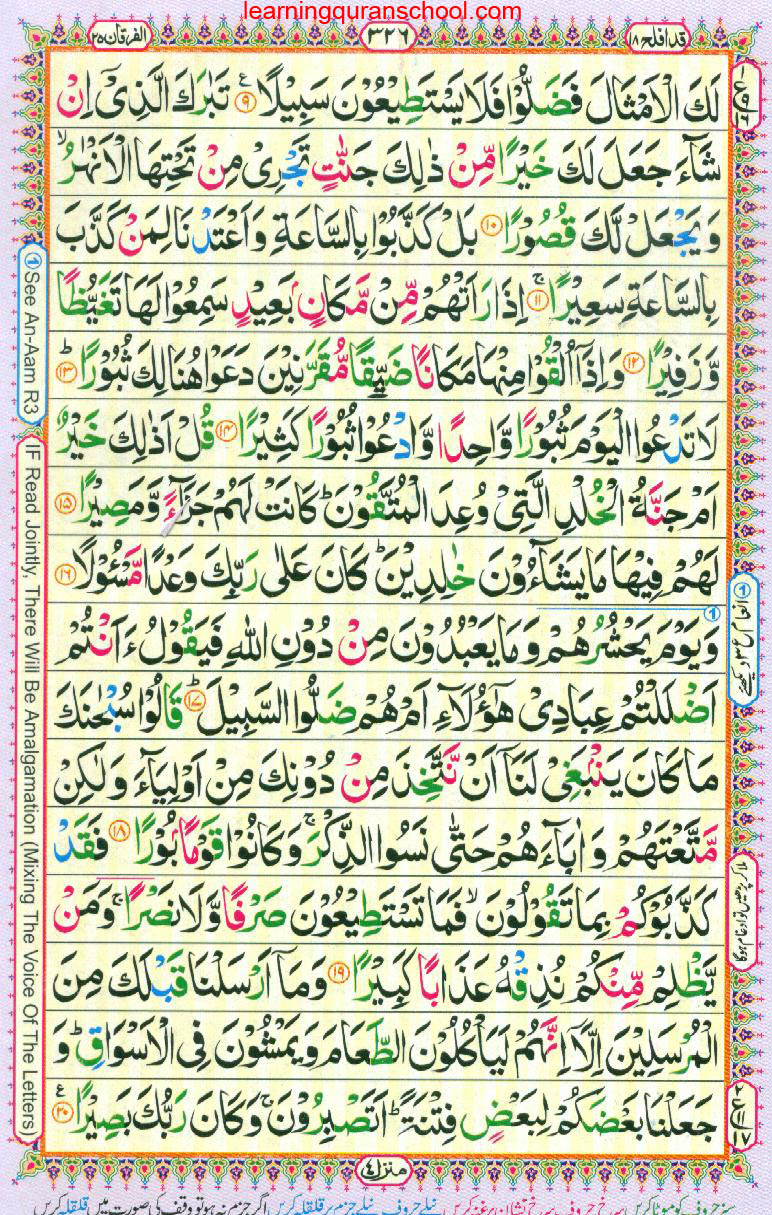 learningquranschool.com
الفرقان ۲۵
۳۲۶
قد افلح ۱۸
لَكَ الْاَمْثَالَ فَضَلُّوْا فَلَا يَسْتَطِيْعُوْنَ سَبِيْلًا ۹ ع تَبٰرَكَ الَّذِىْۤ اِنْ
شَآءَ جَعَلَ لَكَ خَيْرًا مِّنْ ذٰلِكَ جَنّٰتٍ تَجْرِىْ مِنْ تَحْتِهَا الْاَنْهٰرُ ۙ
وَيَجْعَلْ لَّكَ قُصُوْرًا ۱۰ بَلْ كَذَّبُوْا بِالسَّاعَةِ وَاَعْتَدْنَا لِمَنْ كَذَّبَ
بِالسَّاعَةِ سَعِيْرًا ۚ ۱۱ اِذَا رَاَتْهُمْ مِّنْ مَّكَانٍۭ بَعِيْدٍ سَمِعُوْا لَهَا تَغَيُّظًا
وَّزَفِيْرًا ۱۲ وَاِذَاۤ اُلْقُوْا مِنْهَا مَكَانًا ضَيِّقًا مُّقَرَّنِيْنَ دَعَوْا هُنَالِكَ ثُبُوْرًا ؕ ۱۳
لَا تَدْعُوا الْيَوْمَ ثُبُوْرًا وَّاحِدًا وَّادْعُوْا ثُبُوْرًا كَثِيْرًا ۱۴ قُلْ اَذٰلِكَ خَيْرٌ
اَمْ جَنَّةُ الْخُلْدِ الَّتِىْ وُعِدَ الْمُتَّقُوْنَ ؕ كَانَتْ لَهُمْ جَزَآءً وَّمَصِيْرًا ۱۵
لَهُمْ فِيْهَا مَا يَشَآءُوْنَ خٰلِدِيْنَ ؕ كَانَ عَلٰى رَبِّكَ وَعْدًا مَّسْـُٔوْلًا ۱۶
وَيَوْمَ يَحْشُرُهُمْ وَمَا يَعْبُدُوْنَ مِنْ دُوْنِ اللّٰهِ فَيَقُوْلُ ءَاَنْتُمْ
اَضْلَلْتُمْ عِبَادِىْ هٰٓؤُلَآءِ اَمْ هُمْ ضَلُّوا السَّبِيْلَ ؕ ۱۷ قَالُوْا سُبْحٰنَكَ
مَا كَانَ يَنْۢبَغِىْ لَنَاۤ اَنْ نَّتَّخِذَ مِنْ دُوْنِكَ مِنْ اَوْلِيَآءَ وَلٰكِنْ
مَّتَّعْتَهُمْ وَاٰبَآءَهُمْ حَتّٰى نَسُوا الذِّكْرَ ۚ وَكَانُوْا قَوْمًۢا بُوْرًا ۱۸ فَقَدْ
كَذَّبُوْكُمْ بِمَا تَقُوْلُوْنَ ۙ فَمَا تَسْتَطِيْعُوْنَ صَرْفًا وَّلَا نَصْرًا ۚ وَمَنْ
يَّظْلِمْ مِّنْكُمْ نُذِقْهُ عَذَابًا كَبِيْرًا ۱۹ وَمَاۤ اَرْسَلْنَا قَبْلَكَ مِنَ
الْمُرْسَلِيْنَ اِلَّاۤ اِنَّهُمْ لَيَاْكُلُوْنَ الطَّعَامَ وَيَمْشُوْنَ فِى الْاَسْوَاقِ ؕ وَ
جَعَلْنَا بَعْضَكُمْ لِبَعْضٍ فِتْنَةً ؕ اَتَصْبِرُوْنَ ۚ وَكَانَ رَبُّكَ بَصِيْرًا ۲۰ ع
① See An-Aam R3
IF Read Jointly, There Will Be Amalgamation (Mixing The Voice Of The Letters)
منزل ٤
سبز حروف کو موٹا کریں سرخ حروف سرخ نشان پر غنہ کریں نیلے حروف نیلے جزم پر قلقلہ کریں اگر جزم نہ ہو تو وقف کی صورت میں قلقلہ کریں